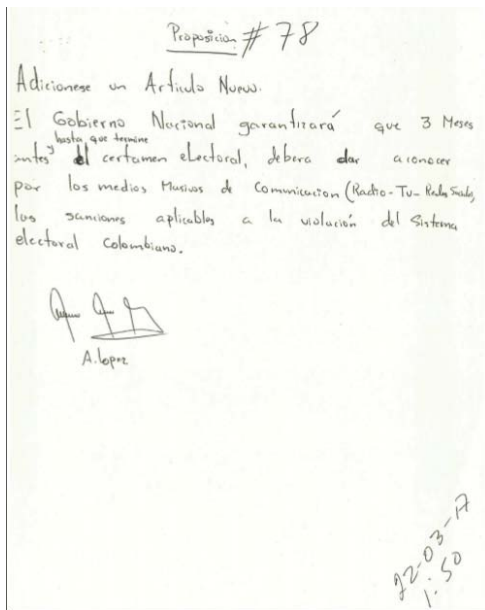 Proposición # 78
Adicionese un Articulo Nuevo.
El Gobierno Nacional garantizará que 3 Meses
hasta que termine
antes y el certamen electoral, debera dar a conocer
por los medios Masivos de Comunicacion (Radio-Tv- Redes Sociales,
las sanciones aplicables a la violación del Sistema
electoral Colombiano.
A. Lopez
22-03-17
1:50